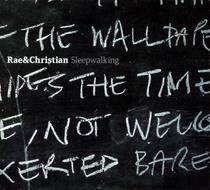 F THE WALLPAPE
Rae&Christian Sleepwalking
HIDES THE TIME
E, NOT WELC
XERTED BARE